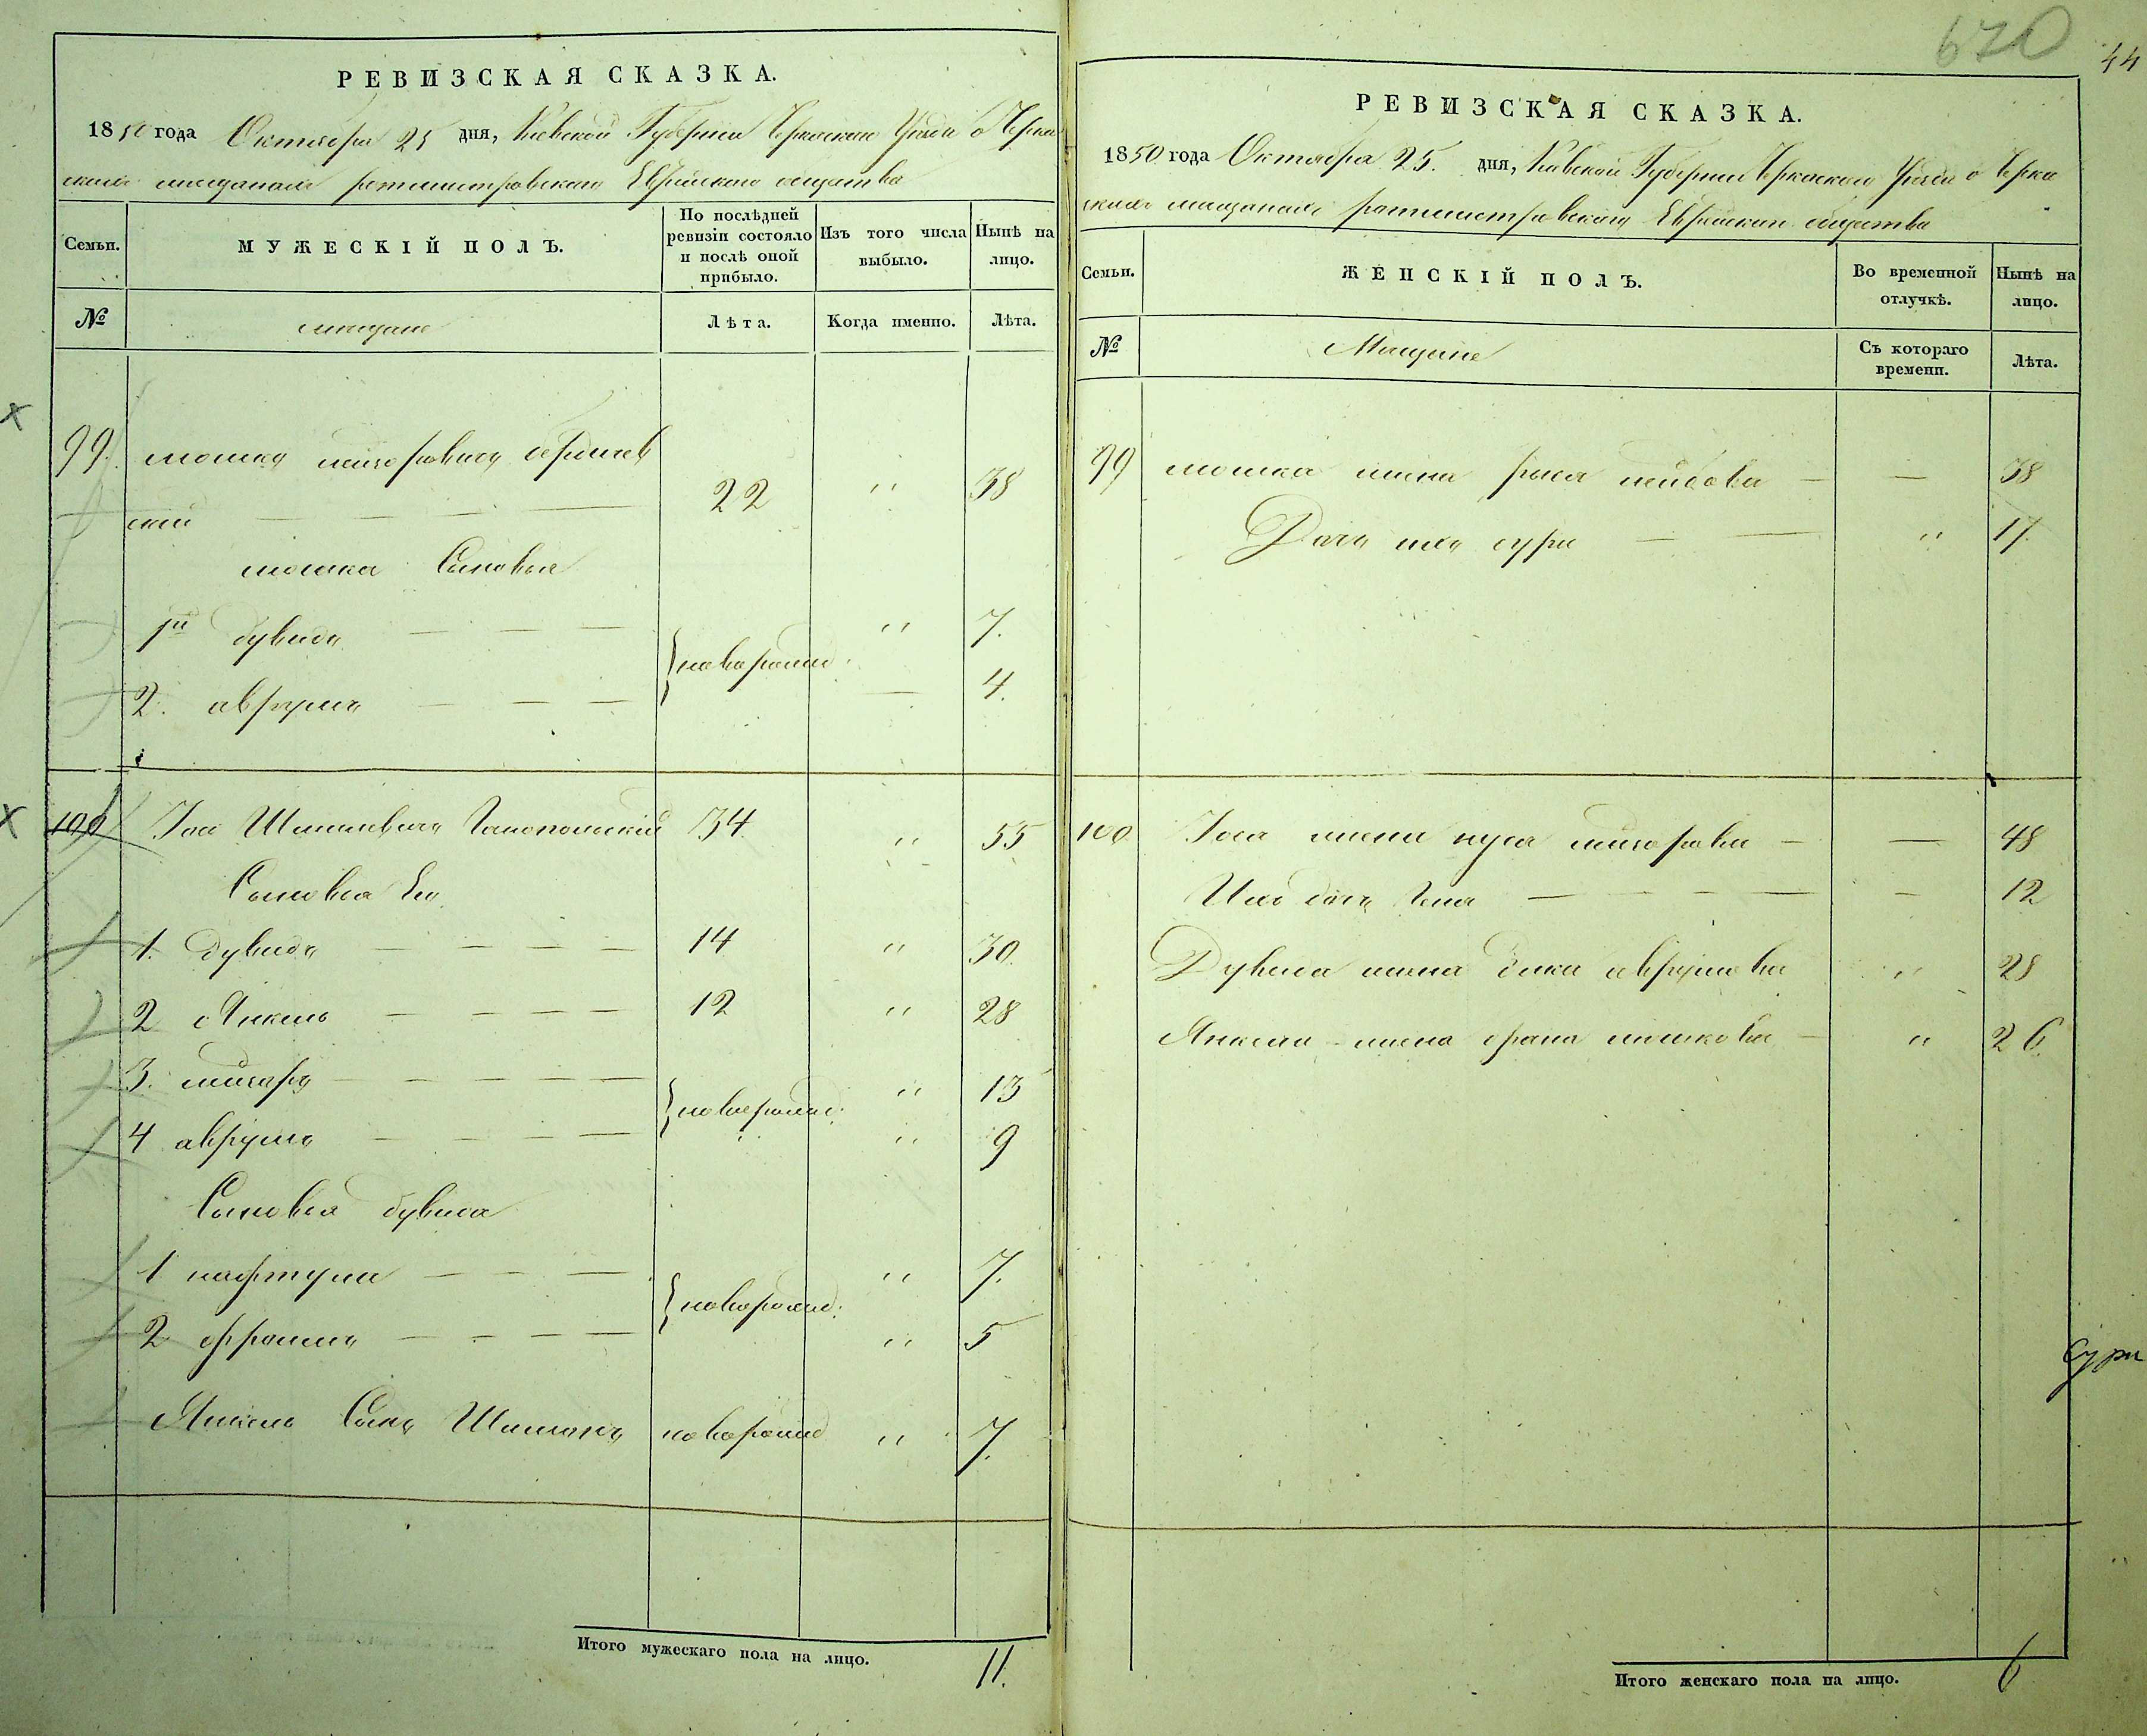 670
44
РЕВИЗСКАЯ СКАЗКА.
1850 года Октября 25 дня, Киевской Губернии Черкаскаго Уезда о Черка
скихъ мещанахъ ротмистровскаго Еврейскаго общества
Семьи.
МУЖЕСКІЙ ПОЛЪ.
По послѣдней ревизіи состояло и послѣ оной прибыло.
Изъ того числа выбыло.
Нынѣ на лицо.
№
мещане
Лѣта.
Когда именно.
Лѣта.
99. мошко бердичев
ский 22 " 38
мошка Сыновья
1й дувидъ " 7.
новорожд.
2. аврумъ — 4.
100 Іось Шимновичъ 34 " 55
Сыновья Его
1. дувидъ 14 " 30.
2 Янкель 12 " 28
3. " 13
новорожд.
4 аврумъ " 9
Сыновья дувида
1 нафтула " 7.
новорожд.
2 " 5
Янкеля Сынъ Шимонъ новорожд " 7.
Итого мужескаго пола на лицо. 11.
РЕВИЗСКАЯ СКАЗКА.
1850 года Октября 25. дня, Киевской Губернии Черкаскаго Уезда о Черка
скихъ мещанахъ ротмистровскаго Еврейскаго общества
Семьи.
ЖЕНСКІЙ ПОЛЪ.
Во временной отлучкѣ.
Нынѣ на лицо.
№
Мещане
Съ котораго времени.
Лѣта.
99 мошка жена лейбова — 38
Дочь ихъ сура " 17.
100 Іося жена — 48
Ихъ дочь — 12
Дувида жена аврумова " 28
Янкеля жена мошкова " 26.
Сура
Итого женскаго пола на лицо. 6